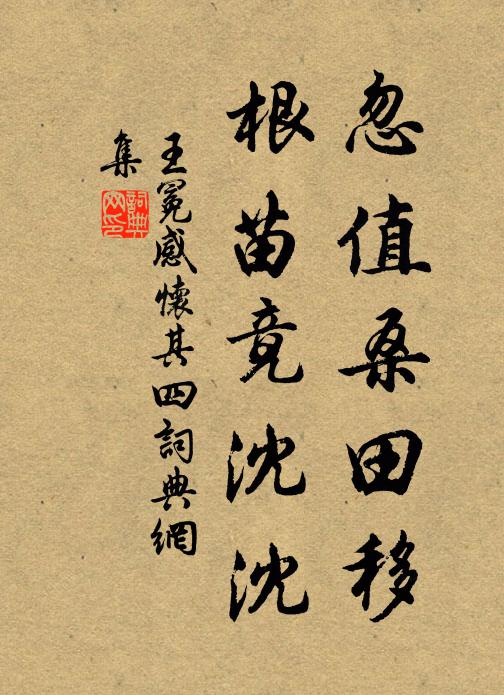 忽值桑田移
根苗竟沈沈
王冕感懷其四詞典網
集
詞典
网印